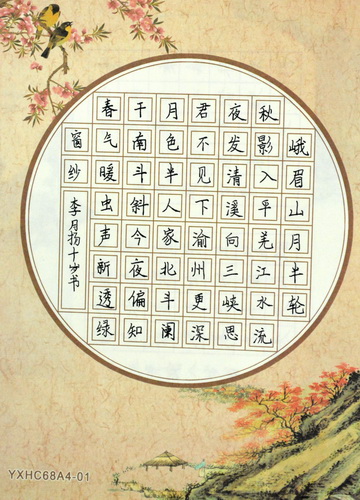 峨眉山月半轮
秋影入平羌江水流
夜发清溪向三峡思
君不见下渝州更深
月色半人家北斗阑
千南斗斜今夜偏知
春气暖虫声新透绿
窗纱
李月扬十岁书
YXHC68A4-01